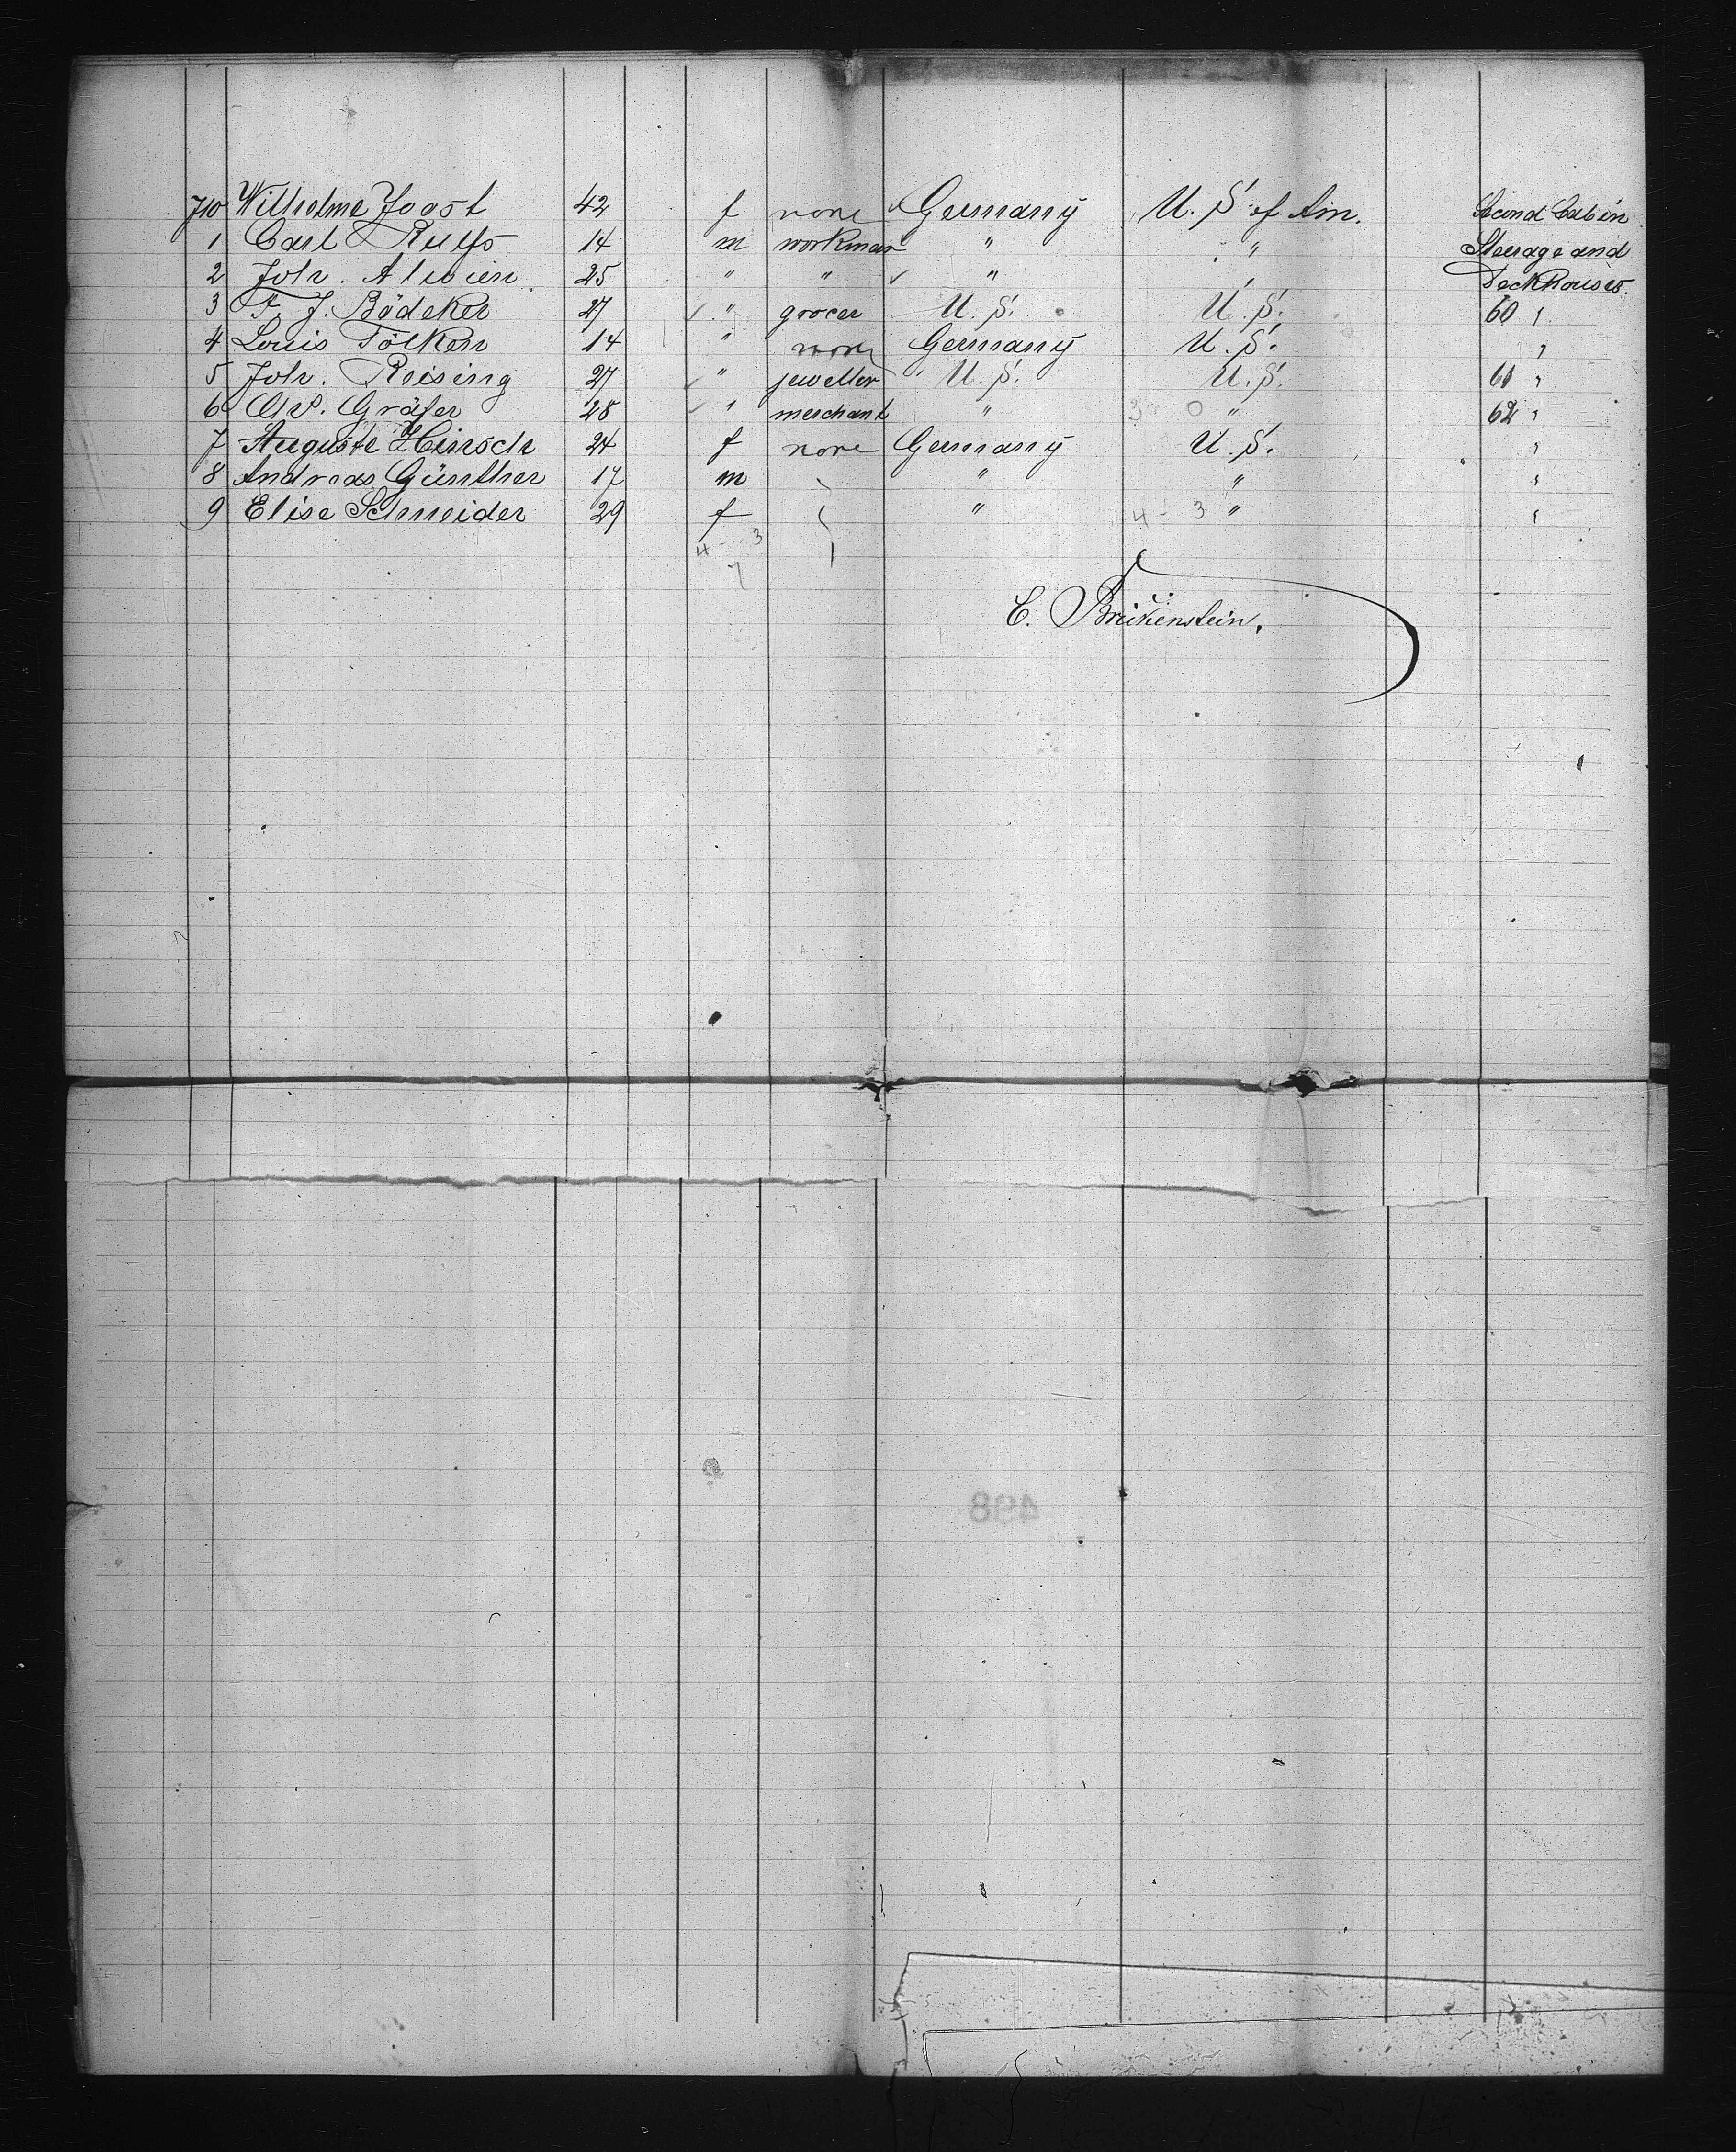 710 Wilhelme Joost 42 f none Germany U. S. of Am. Second Cabin
1 Carl Rulfs 14 m workman " " Steerage and
2 Joh. 25 " " " Deckhouses.
3 F. J. Bödeker 27 " grocer U. S. U. S. 60 "
4 Louis Tölken 14 " none Germany U. S. "
5 Joh. Reising 27 " jeweller U. S. U. S. 61 "
6 Gräfer 28 " merchant " 3 0 " 62 "
7 Auguste Hinsch 24 f none Germany U. S. "
8 Andreas Günther 17 m " " "
9 Elise Schneider 29 f " 4 - 3 " "
4 - 3
7
C. Brückenstein.
498